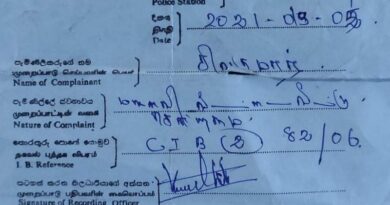 Police Station
දිනය
திகதி 2021-09-05
Date
පැමිණිලිකරුගේ නම
முறைப்பாடு செய்பவரின் பெயர் சிவகுமார்
Name of Complainant
පැමිණිල්ලේ ස්වභාවය
முறைப்பாட்டின் வகை
Nature of Complaint
තොරතුරු පොතේ යොමුව
தகவல் புத்தக விபரம் CIB (2) 82/06.
I. B. Reference
සටහන් කරන නිලධාරියාගේ අත්සන
முறைப்பாடு பதிபவரின் கையொப்பம்
Signature of Recording Officer